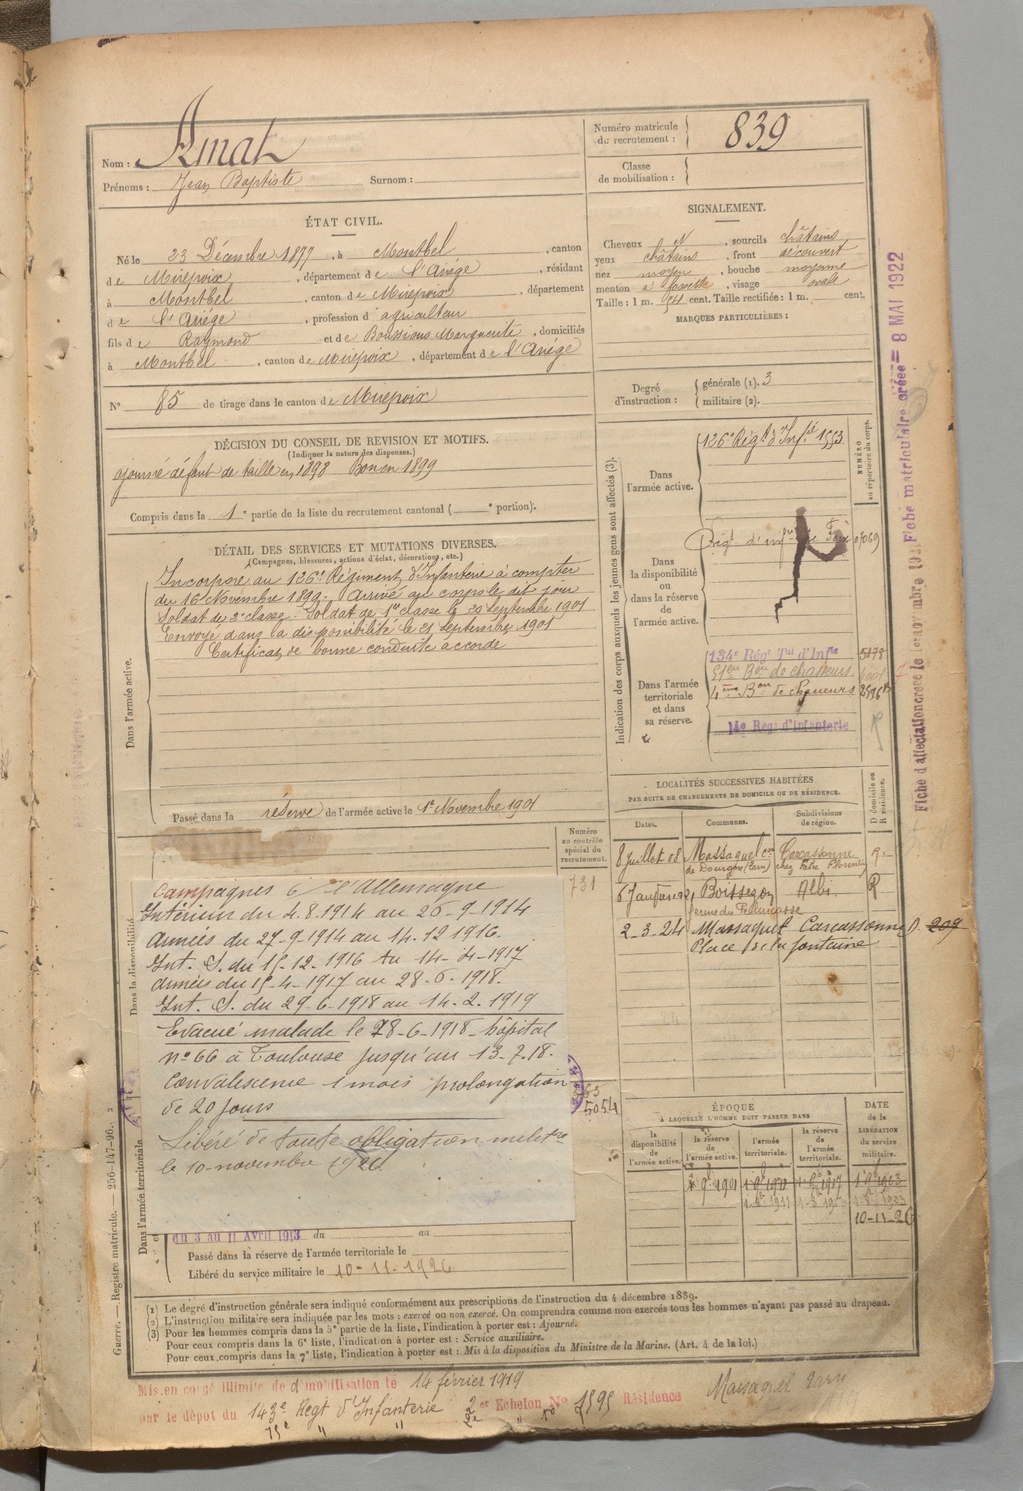 Nom : Amat
Prénoms : Jean Baptiste Surnom :
Numéro matricule du recrutement : 839
Classe de mobilisation :
ÉTAT CIVIL.
Né le 23 Décembre 1877, à Montbel, canton
de Mirepoix, département de l'Ariége, résidant
à Montbel, canton de Mirepoix, département
de l'Ariége, profession d'agriculteur
fils de Raymond et de Boussioux Marguerite, domiciliés
à Montbel, canton de Mirepoix, département de l'Ariége
N° 85 de tirage dans le canton de Mirepoix
SIGNALEMENT.
Cheveux N, sourcils châtains
yeux châtains, front découvert
nez moyen, bouche moyenne
menton à fossette, visage ovale
Taille : 1 m. 54 cent. Taille rectifiée : 1 m. cent.
MARQUES PARTICULIÈRES :
Degré d'instruction : générale (1). 3
militaire (2).
DÉCISION DU CONSEIL DE REVISION ET MOTIFS.
(Indiquer la nature des dispenses.)
ajourné défaut de taille en 1898 Bon en 1899
Compris dans la 1e partie de la liste du recrutement cantonal ( e portion).
DÉTAIL DES SERVICES ET MUTATIONS DIVERSES.
(Campagnes, blessures, actions d'éclat, décorations, etc.)
Dans l'armée active.
Incorporé au 126e Régiment d'Infanterie à compter
du 16 Novembre 1899. Arrivé au corps le dit jour
Soldat de 2e classe. Soldat de 1re classe le 20 septembre 1901
Envoyé dans la disponibilité le 21 septembre 1901
Certificat de bonne conduite accordé
Passé dans la réserve de l'armée active le 1er Novembre 1901
Indication des corps auxquels les jeunes gens sont affectés (3).
NUMÉRO au répertoire du corps.
Dans l'armée active.
126e Régt d'Infie 1553
Dans la disponibilité ou dans la réserve de l'armée active.
Régt d'inf
Dans l'armée territoriale et dans sa réserve.
134e Régt Tal d'Infie 5178
51eme Bon de chasseurs
4eme Bon de chasseurs
14e Régt d'Infanterie
R
LOCALITÉS SUCCESSIVES HABITÉES
PAR SUITE DE CHANGEMENTS DE DOMICILE OU DE RÉSIDENCE.
Dates. Communes. Subdivisions de région. D domicile ou R résidence.
8 Juillet 08 Massaguel con de Dourgne (Tarn) Carcassonne chez Fabre Florentin R.
Boissezon Albi R
ferme du
2-3-24 Massaguel Carcassonne D. 209
Place de la fontaine
Numéro au contrôle spécial du recrutement.
731
Dans la disponibilité
Campagnes c/ l'Allemagne
Intérieur du 4.8.1914 au 26-9-1914
Armées du 27-9-1914 au 14.12.1916.
Int. S. du 15.12.1916 au 14-4-1917
Armées du 15-4-1917 au 28.6.1918.
Int. S. du 29-6-1918 au 14.2.1919
Evacué malade le 28-6-1918 hôpital
n° 66 à Toulouse jusqu'au 13-7-18.
Convalescence 1 mois prolongation
de 20 jours
Libéré de toute obligation militre
le 10 novembre 1926
5054
Dans l'armée territoriale.
du 3 au 11 Avril 1913 du au
Passé dans la réserve de l'armée territoriale le
Libéré du service militaire le 10-11-1926
ÉPOQUE
A LAQUELLE L'HOMME DOIT PASSER DANS
la disponibilité de l'armée active. la réserve de l'armée active. l'armée territoriale. la réserve de l'armée territoriale.
DATE de la LIBÉRATION du service militaire.
10-11-26
(1) Le degré d'instruction générale sera indiqué conformément aux prescriptions de l'instruction du 4 décembre 1889.
(2) L'instruction militaire sera indiquée par les mots : exercé ou non exercé. On comprendra comme non exercés tous les hommes n'ayant pas passé au drapeau.
(3) Pour les hommes compris dans la 5e partie de la liste, l'indication à porter est : Ajourné.
Pour ceux compris dans la 6e liste, l'indication à porter est : Service auxiliaire.
Pour ceux compris dans la 7e liste, l'indication à porter est : Mis à la disposition du Ministre de la Marine. (Art. 4 de la loi.)
Guerre. — Registre matricule. — 256-147-96.
Mis en congé illimité de démobilisation le 14 février 1919
par le dépôt du 143e Regt d'Infanterie Echelon No 1595 Résidence Massaguel Tarn
15e " "
Fiche matriculaire créée = 8 MAI 1922
Fiche d'affectation créée le